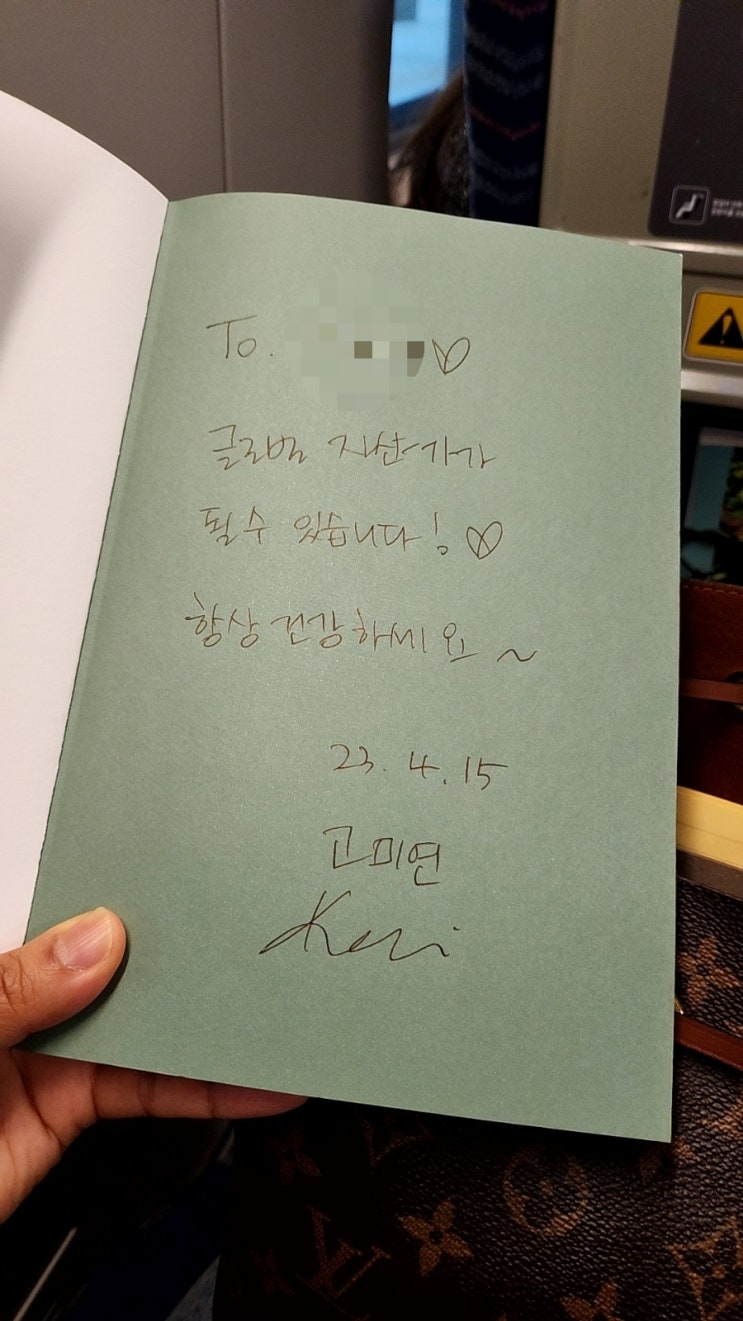 To. ♡
글로벌 자산가가
될 수 있습니다! ♡
항상 건강하세요 ~
23. 4. 15
고미연
Keri